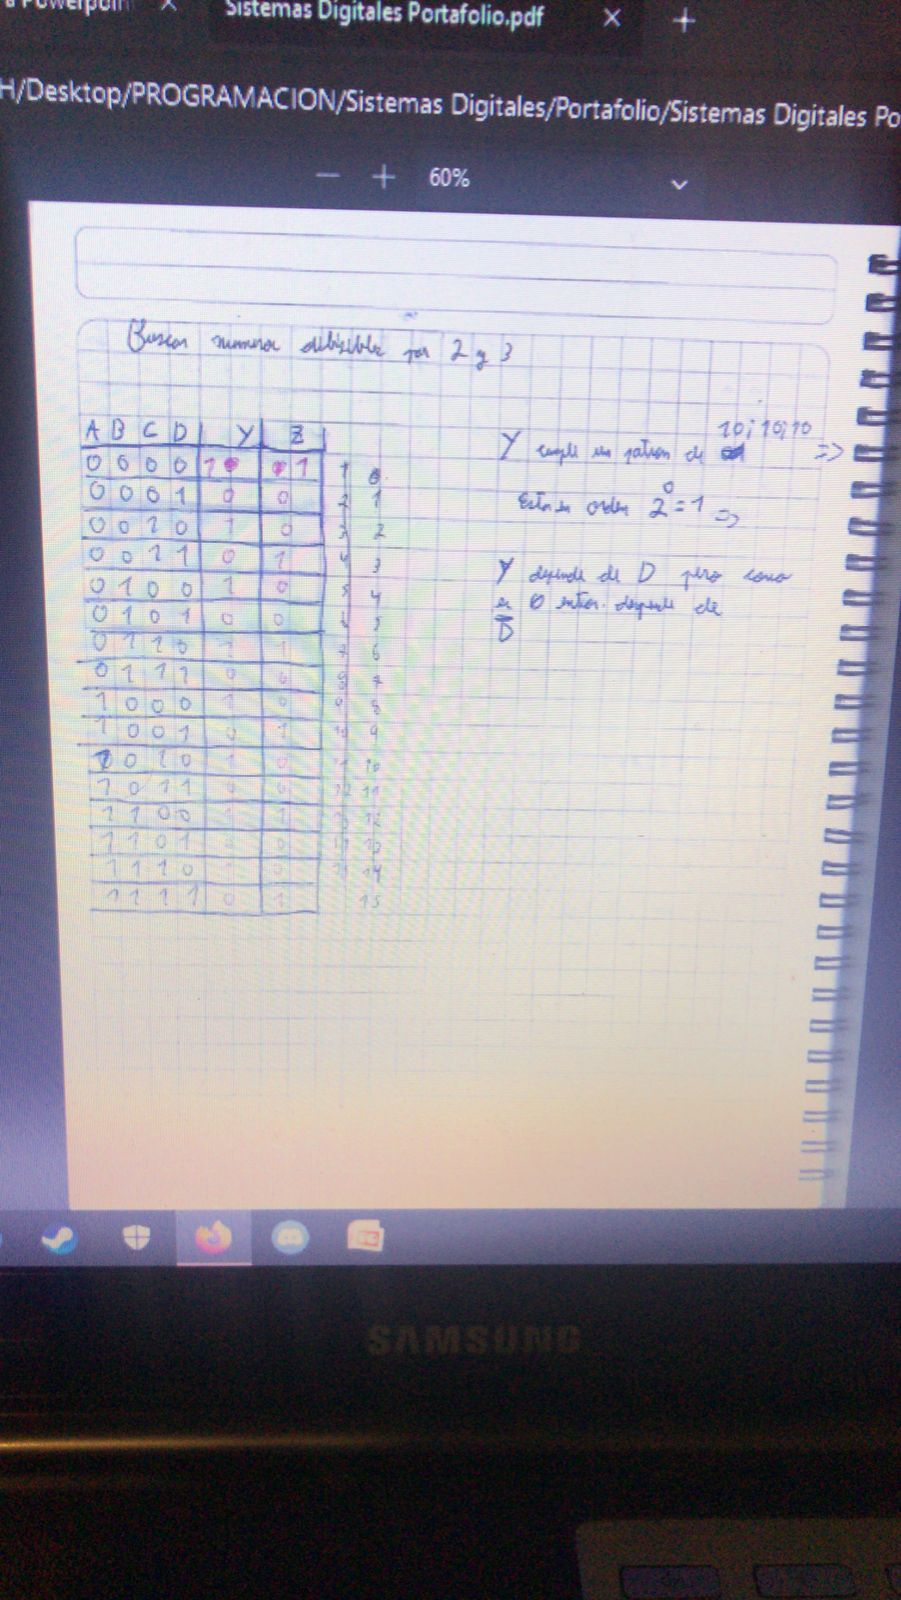 Powerpoin
Sistemas Digitales Portafolio.pdf
H/Desktop/PROGRAMACION/Sistemas Digitales/Portafolio/Sistemas Digitales Po
60%
Buscar numeros por 2 y 3
A B C D Y Z
0 0 0 0 1 1 1 0
0 0 0 1 0 0 2 1
0 0 1 0 1 0 3 2
0 0 1 1 0 1 4 3
0 1 0 0 1 0 5 4
0 1 0 1 0 0 5
0 1 1 0 1 1 6
0 1 1 1 0 0 7
1 0 0 0 1 0 8
1 0 0 1 0 1 10 9
1 0 1 0 1 0 10
1 0 1 1 0 0 12 11
1 1 0 0 1 1 12
1 1 0 1 0 13
1 1 1 0 14
1 1 1 1 0 1 15
10; 10; 10
Y cumple un patron de =>
Esta en orden 2⁰ = 1 =>
Y depende de D pero como
es 0 depende de
D̅
SAMSUNG